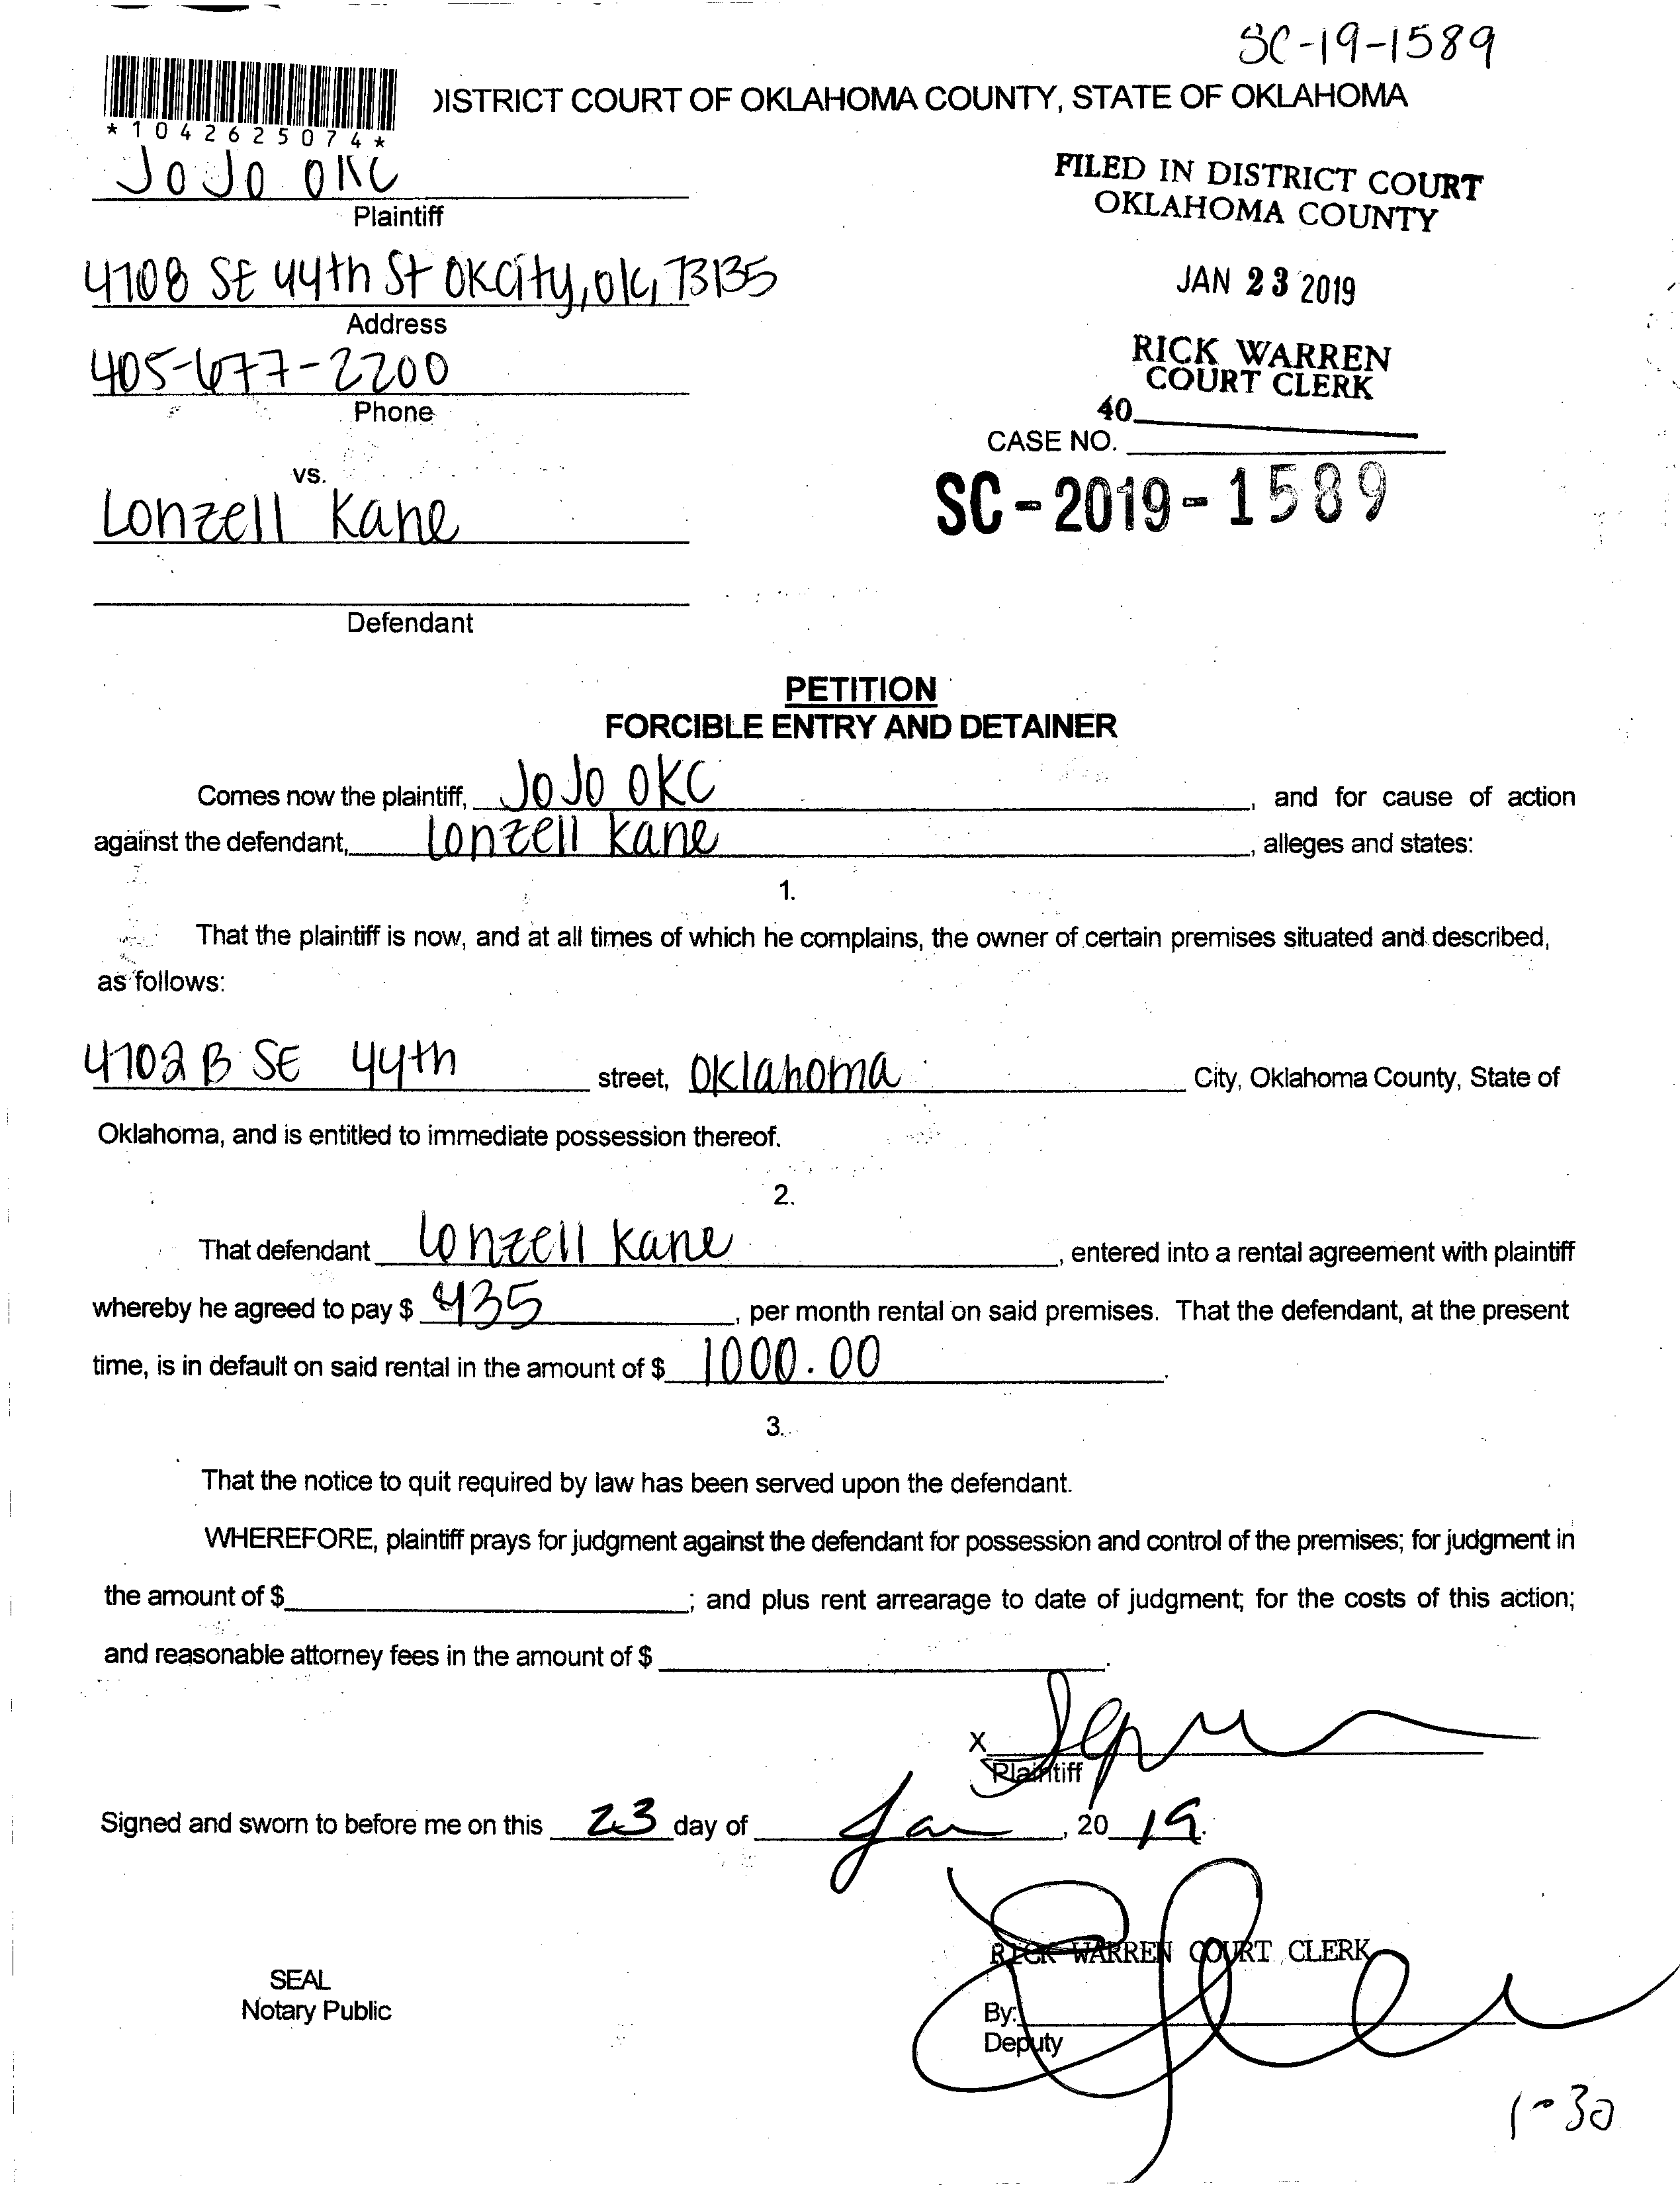 SC-19-1589
DISTRICT COURT OF OKLAHOMA COUNTY, STATE OF OKLAHOMA
*1042625074*
JoJo OKC
Plaintiff
FILED IN DISTRICT COURT
OKLAHOMA COUNTY
4708 SE 44th St OKCity, ok, 73135
Address
JAN 23 2019
405-677-2200
Phone
RICK WARREN
COURT CLERK
40
CASE NO.
SC-2019-1589
vs.
Lonzell Kane
Defendant
PETITION
FORCIBLE ENTRY AND DETAINER
Comes now the plaintiff, JoJo OKC, and for cause of action
against the defendant, Lonzell Kane, alleges and states:
1.
That the plaintiff is now, and at all times of which he complains, the owner of certain premises situated and described,
as follows:
4702 B SE 44th street, Oklahoma City, Oklahoma County, State of
Oklahoma, and is entitled to immediate possession thereof.
2.
That defendant Lonzell Kane, entered into a rental agreement with plaintiff
whereby he agreed to pay $ 435, per month rental on said premises. That the defendant, at the present
time, is in default on said rental in the amount of $ 1000.00.
3.
That the notice to quit required by law has been served upon the defendant.
WHEREFORE, plaintiff prays for judgment against the defendant for possession and control of the premises; for judgment in
the amount of $ ; and plus rent arrearage to date of judgment; for the costs of this action;
and reasonable attorney fees in the amount of $ .
X
Plaintiff
Signed and sworn to before me on this 23 day of Jan, 20 19.
RICK WARREN COURT CLERK
SEAL
Notary Public
By:
Deputy
1-30